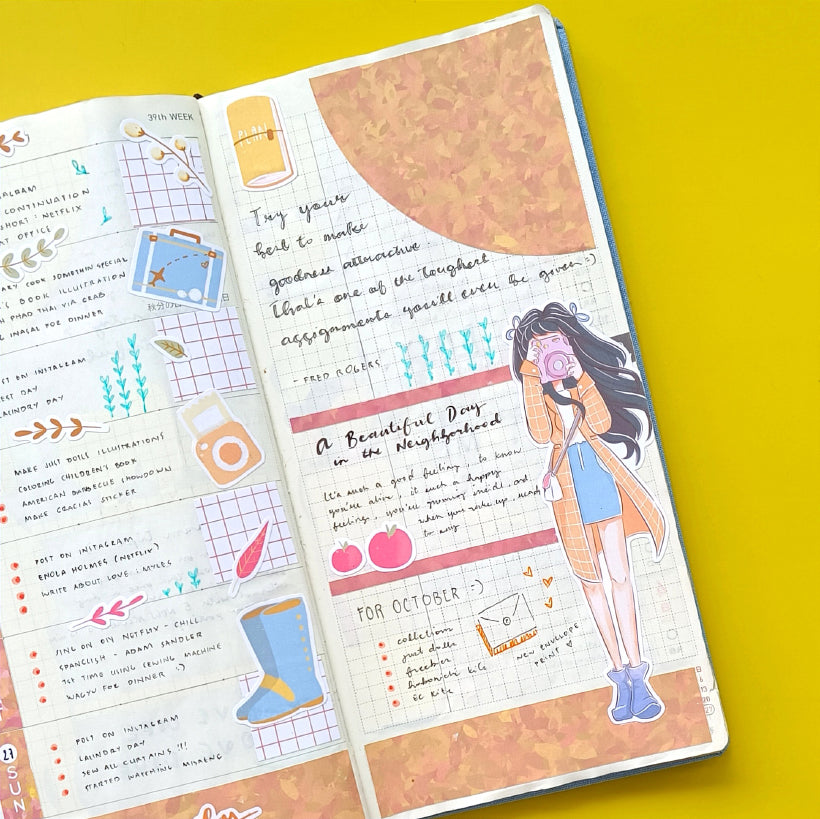 39th WEEK
CONTINUATION
SHORT : NETFLIX
OFFICE
COOK SOMETHIN SPECIAL
BOOK ILLUSTRATION
PHAD THAI VIA GRAB
INASAL FOR DINNER
秋分の日
ON INSTAGRAM
DAY
LAUNDRY DAY
MAKE JUST DOLLS ILLUSTRATIONS
COLORING CHILDREN'S BOOK
AMERICAN BARBECUE SHOWDOWN
MAKE GRACIAS STICKER
POST ON INSTAGRAM
ENOLA HOLMES (NETFLIX)
WRITE ABOUT LOVE : MYLES
NETFLIX - CHILL
SPANGLISH - ADAM SANDLER
1ST TIME USING SEWING MACHINE
WAGYU FOR DINNER :)
27
SUN
POST ON INSTAGRAM
LAUNDRY DAY
SEW ALL CURTAINS !!!
STARTED WATCHING MISAENG
PLAN
Try your
best to make
goodness attractive.
That's one of the toughest
assignments you'll ever be given :)
- FRED ROGERS
A Beautiful Day
in the Neighborhood
It's such a good feeling, to know
you're alive, it such a happy
feeling, you're growing inside, and
when you wake up, ready
to say
FOR OCTOBER :)
collection
just dolls
freebies
hobonichi kits
EC kits
NEW ENVELOPE
PRINT